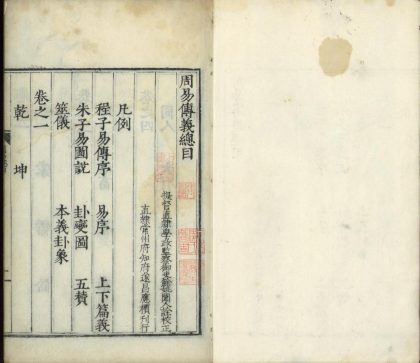 周易傳義總目
提督直隸學政監察御史餘姚聞人詮校正
直隸常州府知府遂昌應檟刊行
凡例
程子易傳序 易序 上下篇義
朱子易圖說 卦變圖 五賛
筮儀 本義卦象
卷之一
乾 坤